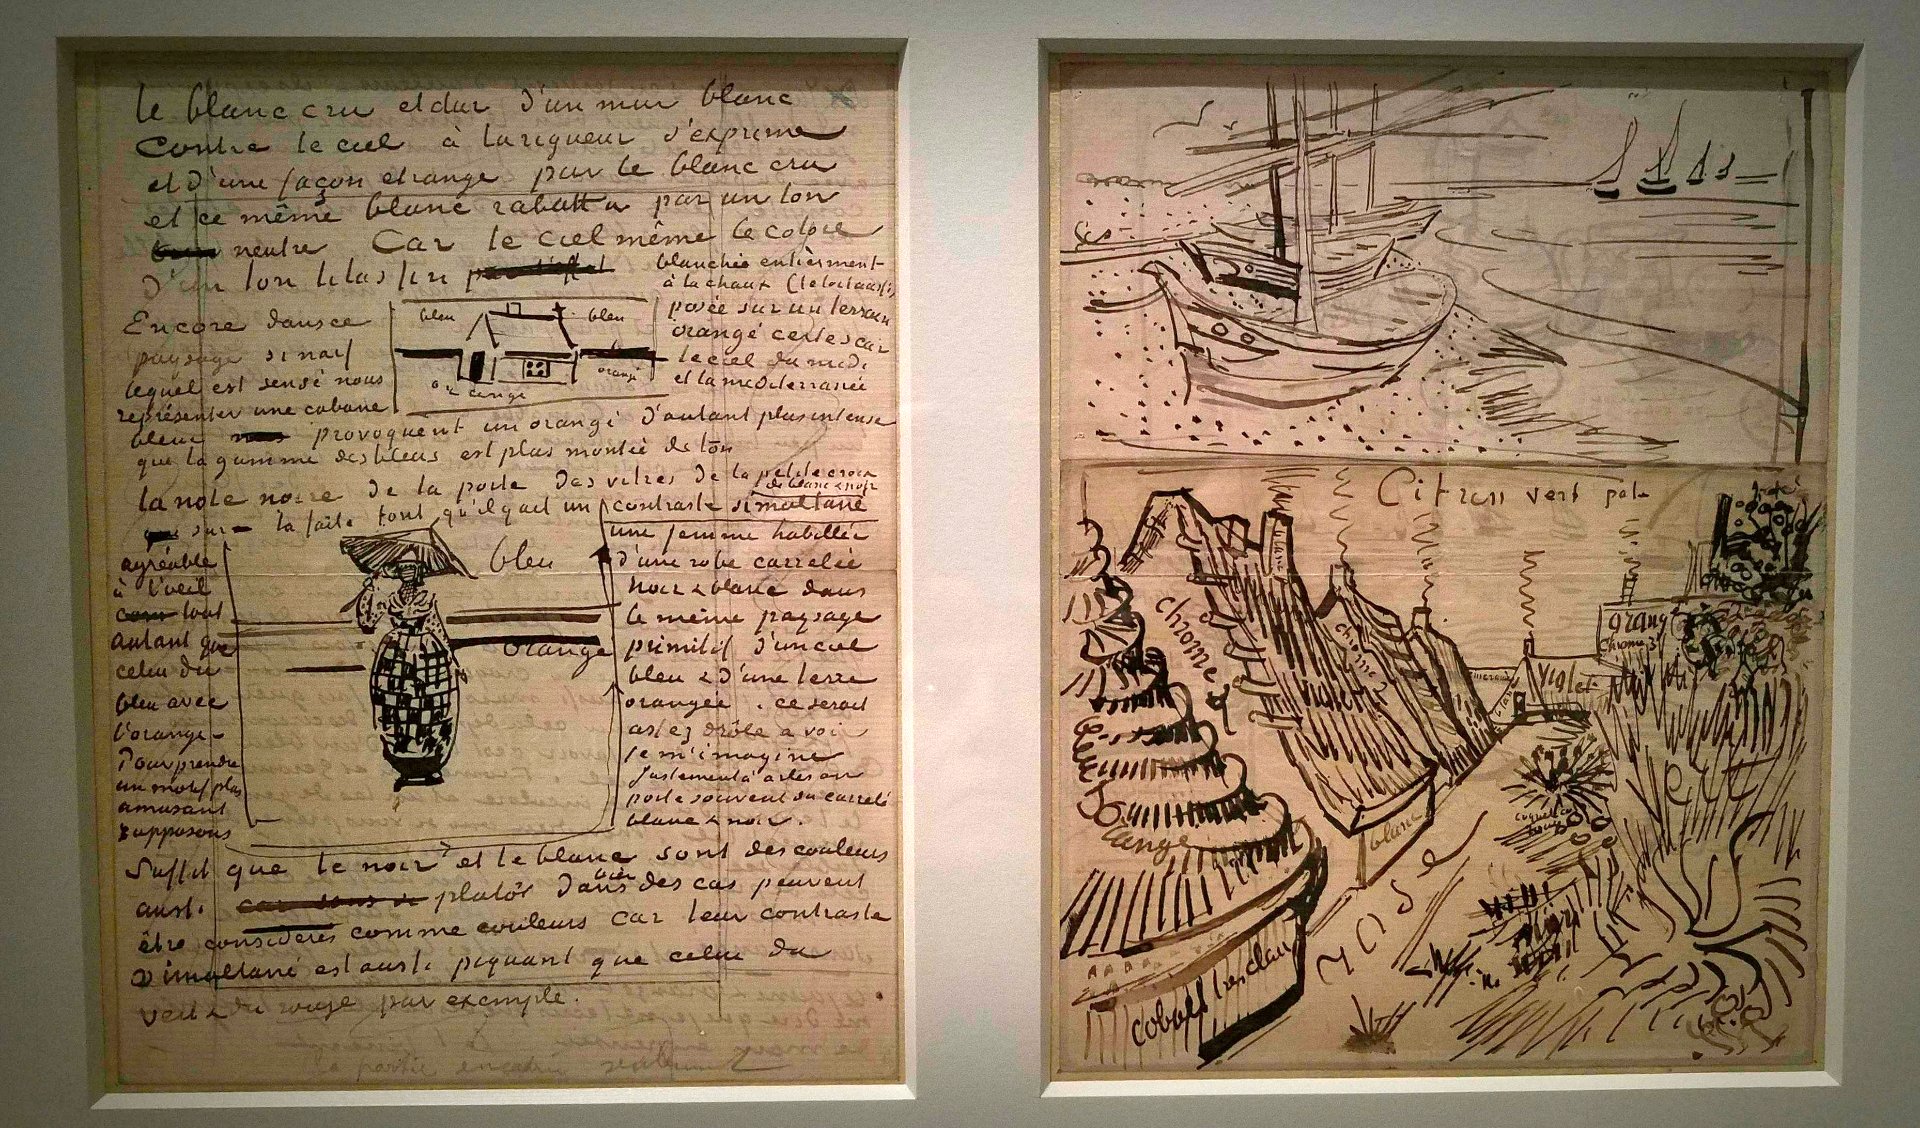 le blanc cru et dur d'un mur blanc
contre le ciel à la rigueur s'exprime
et d'une façon etrange par le blanc cru
et ce même blanc rabattu par un ton
neutre Car le ciel même le colore
d'un ton lilas fin
Encore dans ce
paysage si naif
lequel est sensé nous
représenter une cabane
bleu
bleu
orangé
orangé
blanchie entièrement
à la chaux (le toit aussi)
posée sur un terrain
orangé certes car
le ciel du midi
et la mediterranée
bleue provoquent un orangé d'autant plus intense
que la gamme des bleus est plus montée de ton
la note noire de la porte des vitres de la petite croix
de blanc & noir
sur la faite font qu'il y ait un contraste simultané
agréable
à l'oeil
tout
autant que
celui du
bleu avec
l'orangé
Pour prendre
un motif plus
amusant
supposons
bleu
orangé
une femme habillée
d'une robe carrelée
noir & blanc dans
le même paysage
primitif d'un ciel
bleu & d'une terre
orangée. ce serait
assez drôle a voir
je m'imagine
justement à Arles on
porte souvent du carrelé
blanc & noir.
Suffit que le noir et le blanc sont des couleurs
aussi. plutôt dans bien des cas peuvent
être considérés comme couleurs car leur contraste
simultané est aussi piquant que celui du
vert & du rouge par exemple.
Citron vert pale
chrome 2
violet
chrome
orangé
chrome 3
violet
vert
orangé
blanc
rose
cobalt tres clair